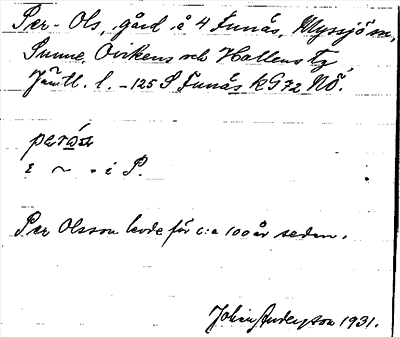 Per-Ols, gård å 4 Funäs, Myssjö sn,
Sunne, Ovikens och Hallens tg
Jämtl. l. -125 S Funäs kG72 NÖ.
perós
i ~ - i P.
Per Olsson levde för c:a 100 år sedan.
Johan Anderson 1931.